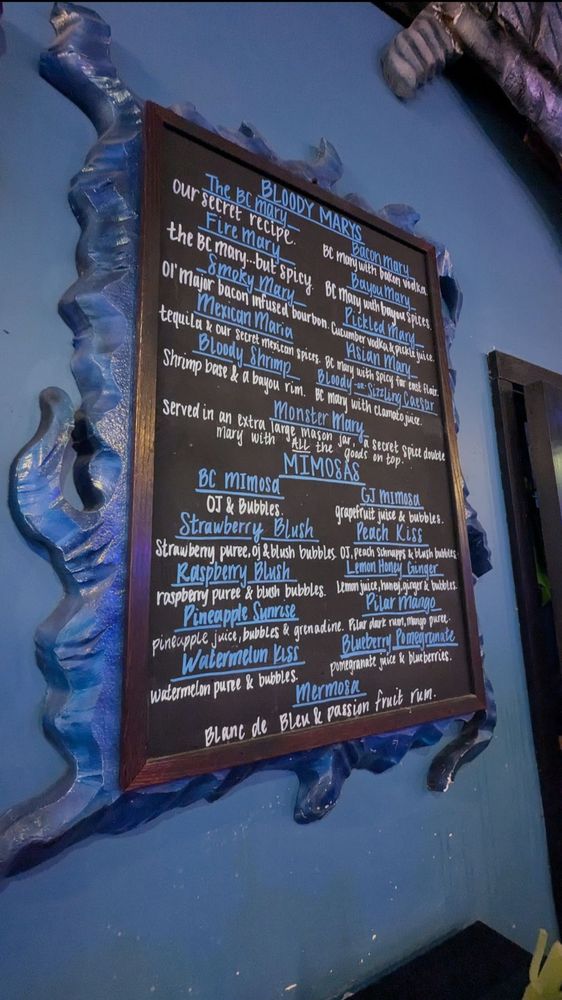 BLOODY MARYS
The BC mary
our secret recipe.
Fire Mary
the BC Mary...but spicy.
Smoky Mary
Ol' major bacon infused bourbon.
Mexican Maria
tequila & our secret mexican spices.
Bloody Shrimp
Shrimp base & a bayou rim.
Bacon Mary
BC mary with bacon vodka.
Bayou Mary
BC mary with bayou spices.
Pickled Mary
Cucumber vodka & pickle juice.
Asian Mary
BC mary with spicy far east flair.
Bloody -or- Sizzling Caesar
BC mary with clamato juice.
Monster Mary
Served in an extra large mason jar, a secret spice double
mary with All the goods on top.
MIMOSAS
BC mimosa
OJ & Bubbles.
Strawberry Blush
Strawberry puree, oj & blush bubbles.
Raspberry Blush
raspberry puree & blush bubbles.
Pineapple Sunrise
pineapple juice, bubbles & grenadine.
Watermelon Kiss
watermelon puree & bubbles.
GJ mimosa
grapefruit juice & bubbles.
Peach Kiss
OJ, peach schnapps & blush bubbles.
Lemon Honey Ginger
Lemon juice, honey, ginger & bubbles.
Pilar Mango
Pilar dark rum, mango puree.
Blueberry Pomegranate
pomegranate juice & blueberries.
Mermosa
Blanc de Bleu & passion fruit rum.